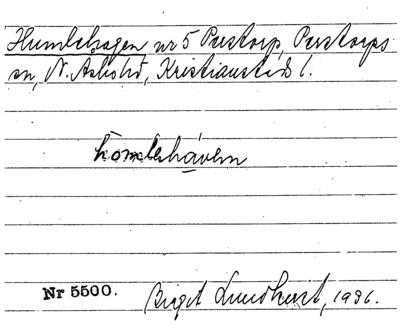 Humlehagen nr 5 Perstorp, Perstorps
sn, N. Åsbo hd, Kristianstads l.
homlehávem
Nr 5500.
Birgit Lundkvist, 1936.